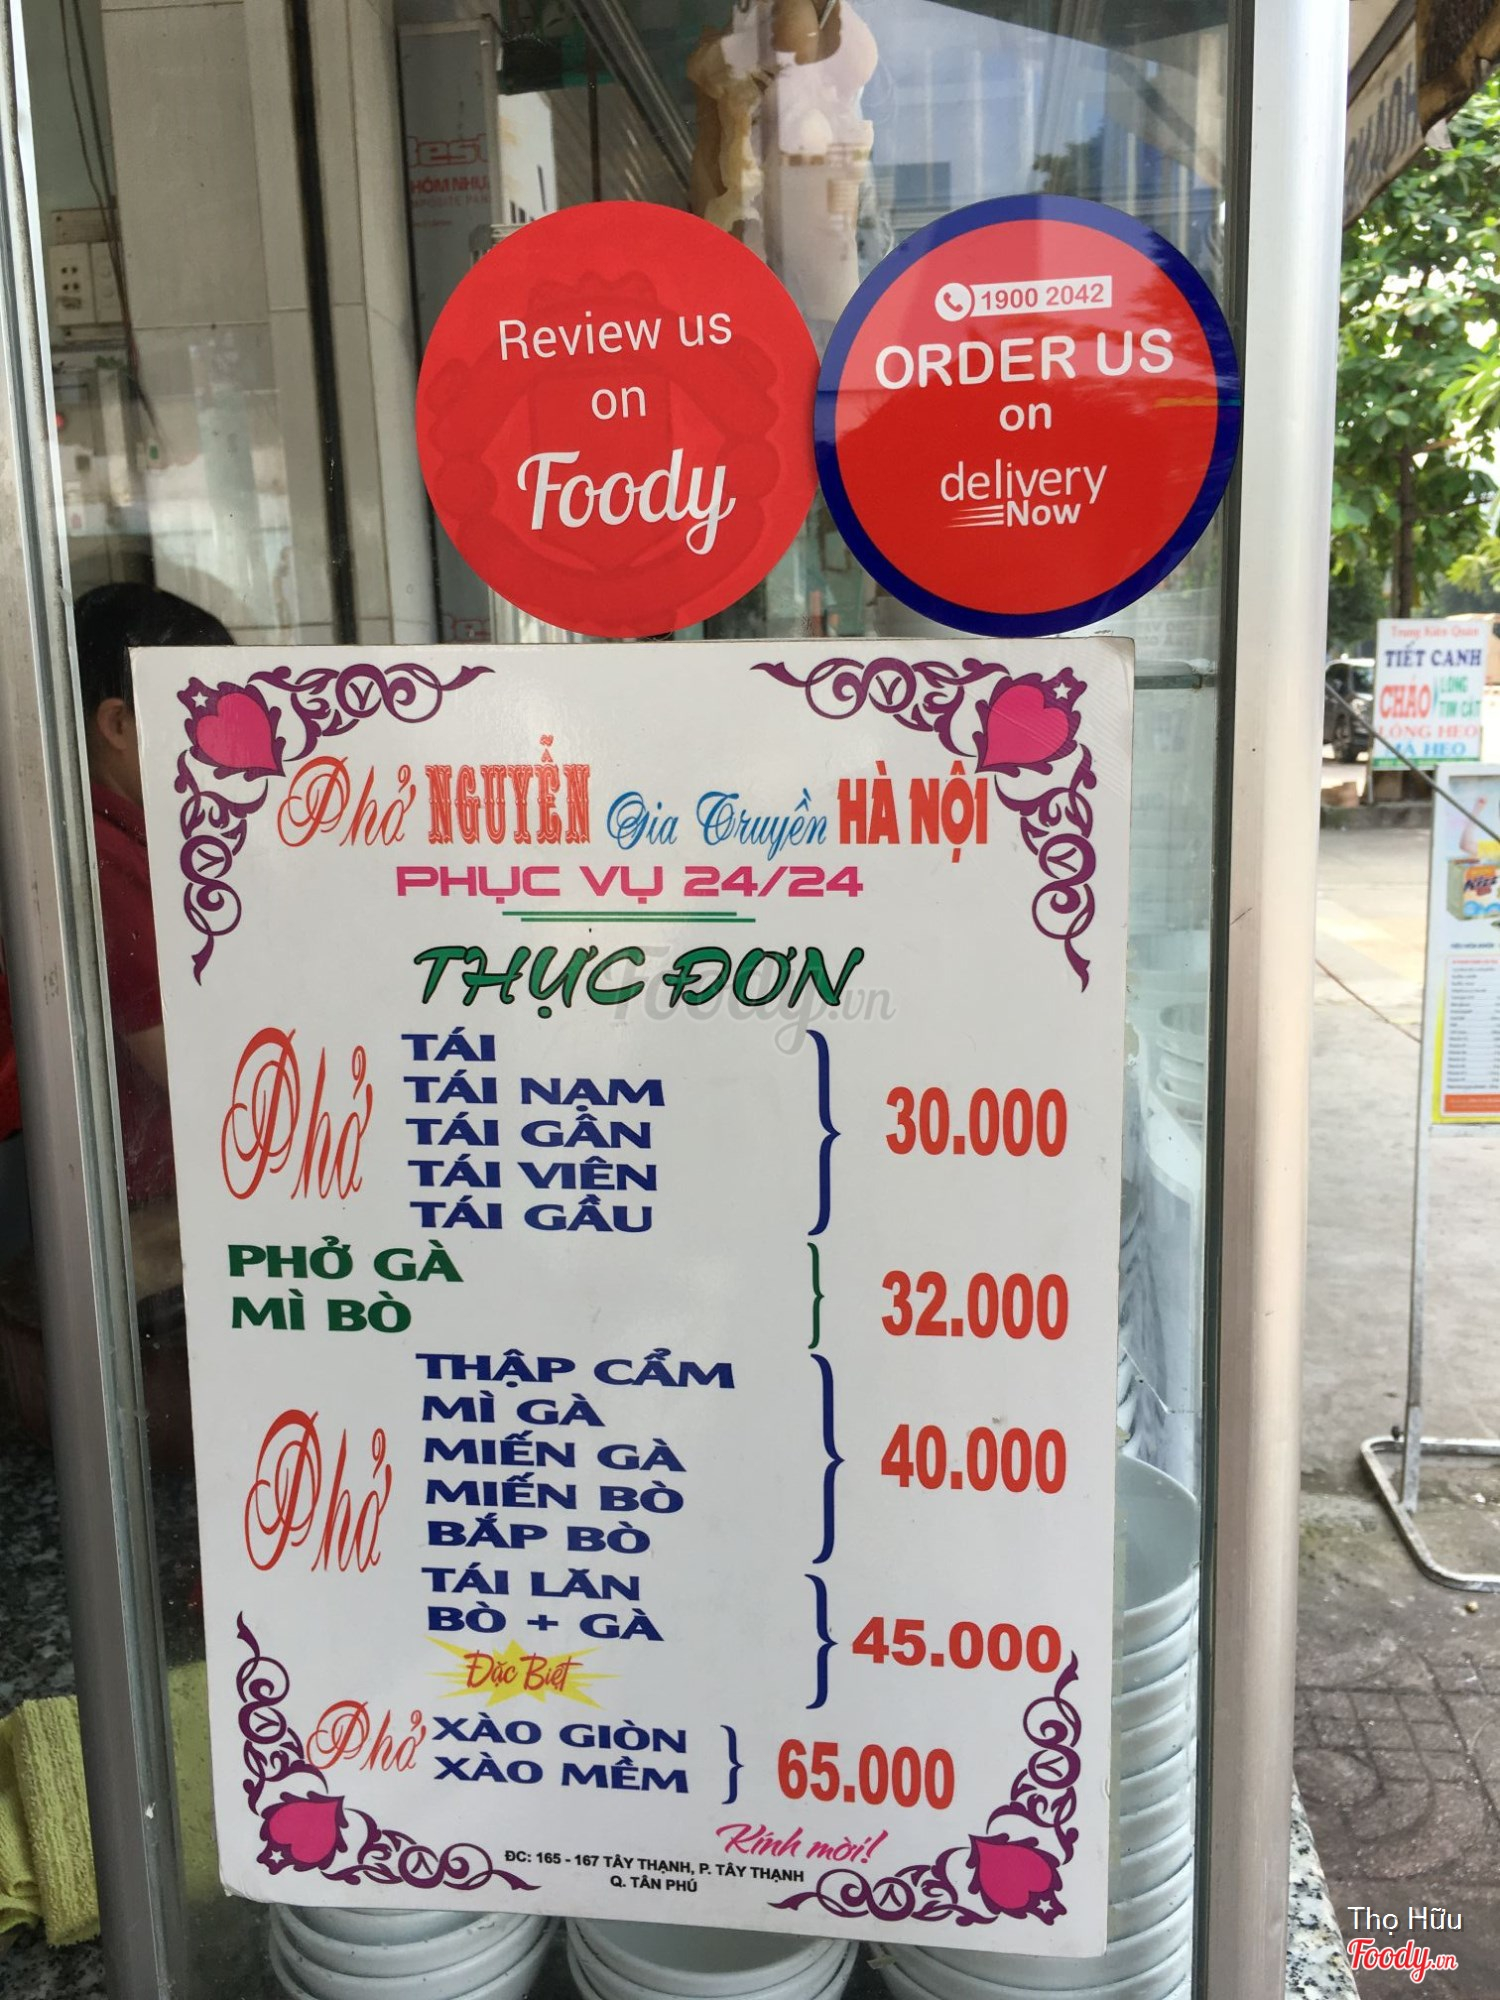 Best
NHÔM NHỰA
Review us
on
Foody
1900 2042
ORDER US
on
delivery
Now
Phở NGUYỄN Gia Truyền HÀ NỘI
PHỤC VỤ 24/24
THỰC ĐƠN
Foody.vn
Phở
TÁI
TÁI NẠM
TÁI GÂN
TÁI VIÊN
TÁI GẦU
30.000
PHỞ GÀ
MÌ BÒ
32.000
Phở
THẬP CẨM
MÌ GÀ
MIẾN GÀ
MIẾN BÒ
BẮP BÒ
40.000
TÁI LĂN
BÒ + GÀ
Đặc Biệt
45.000
Phở
XÀO GIÒN
XÀO MỀM
65.000
Kính mời!
ĐC: 165 - 167 TÂY THẠNH, P. TÂY THẠNH
Q. TÂN PHÚ
Trung Kiên Quán
TIẾT CANH
CHÁO
LÒNG
TIM CẬT
LÒNG HEO
Thọ Hữu
Foody.vn